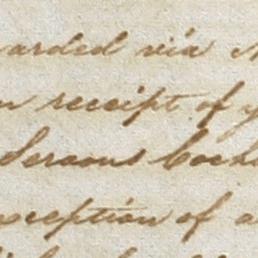 arded via
n receipt of y
Seroons Coch
xception of a